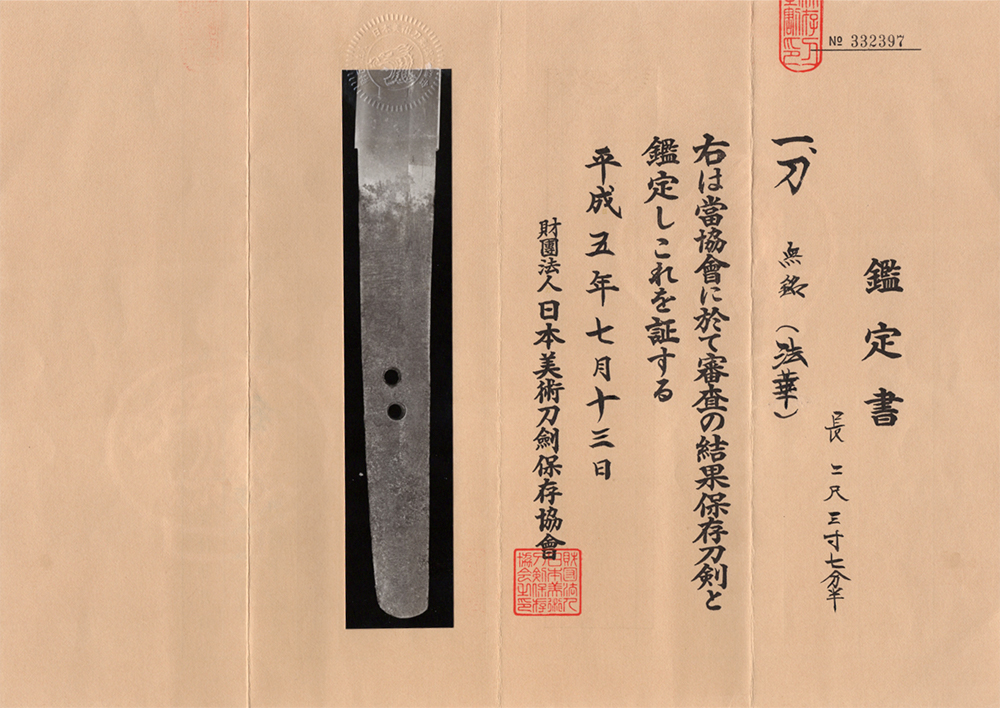 № 332397
鑑定書
長 二尺三寸七分半
一、刀 無銘(法華)
右は當協會に於て審査の結果保存刀剣と
鑑定しこれを証する
平成五年七月十三日
財團法人 日本美術刀劍保存協會
財団法人日本美術刀剣保存協会之印